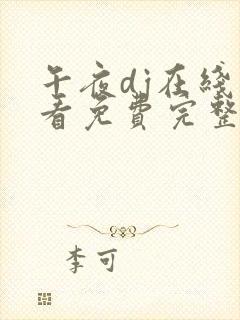 午夜dj在线
看免费完整
李可